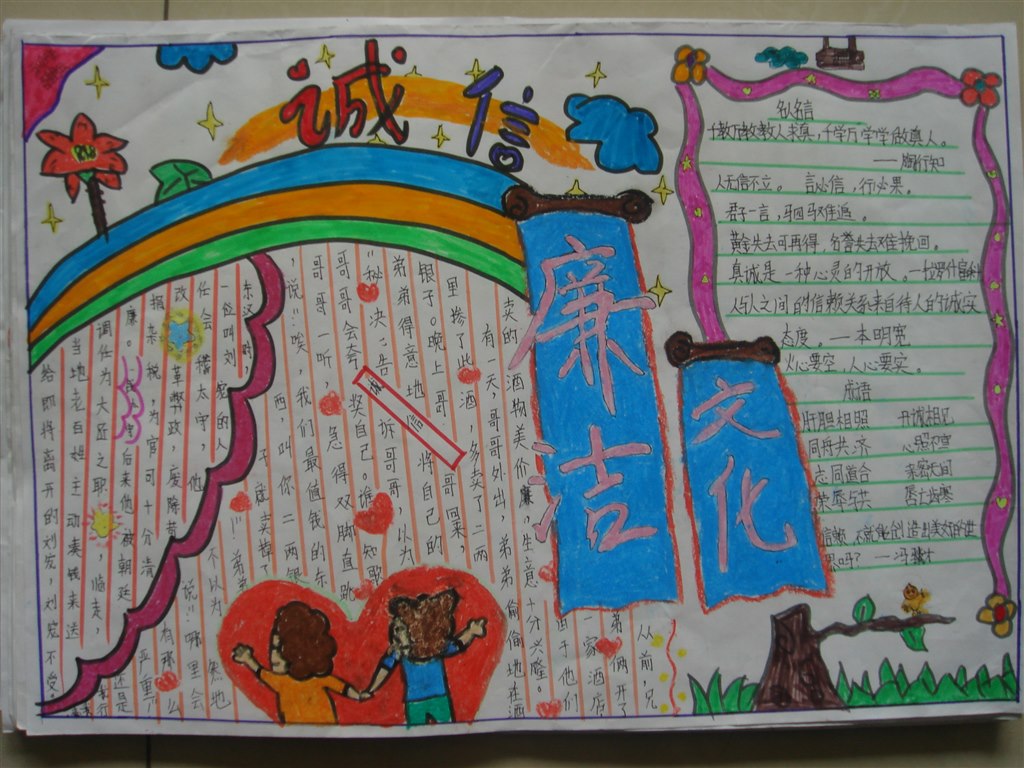 诚信
廉洁
文化
名言
千教万教教人求真，千学万学学做真人。
——陶行知
人无信不立。 言必信，行必果。
君子一言，驷马难追。
黄金失去可再得，名誉失去难挽回。
真诚是一种心灵的开放。—拉罗什富科
人与人之间的信赖关系来自待人的诚实
态度。——本明宽
火心要空，人心要实。
成语
肝胆相照 开诚相见
同舟共济 心照不宣
志同道合 亲密无间
荣辱与共 唇亡齿寒
信赖，不就能创造出美好的世
界吗？ —冯骥才
从前，兄
弟俩开了
一家酒店
由于他们
卖的酒物美价廉，生意十分兴隆。
有一天，哥哥外出，弟弟偷偷地在酒
里掺了些酒，多卖了二两
银子。晚上哥哥回来，
弟弟得意地将自己的
“秘决”告诉哥哥，以为
哥哥会夸奖自己。谁知歌
哥哥一听，急得双脚直跳
，说：“唉，我们最值钱的东
西，叫你二两银
子就卖掉了
！”弟弟
不以为然地
说：“哪里会
有那么
严重！”
诚信
东汉时，
一位叫刘宠的人
任会稽太守，他
改革弊政，废除苛
捐杂税，为官可十分清
廉。后来他被朝廷
调任为大匠之职，临走，
当地老百姓主动凑钱来送
给即将离开的刘宠，刘宠不受。